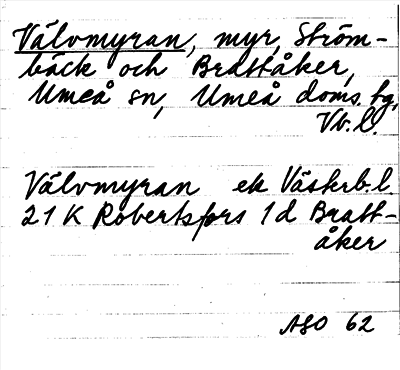 Välvmyran, myr, Ström-
bäck och Brattåker,
Umeå sn, Umeå doms. tg,
Vb.l.
Välvmyran ek Västerb.l.
21 K Robertsfors 1d Bratt-
åker
ASO 62